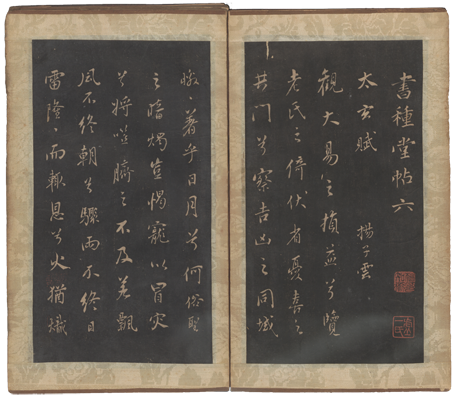 書種堂帖六
太玄賦 揚子雲
觀大易之損益兮覽
老氏之倚伏省憂喜之
共門兮察吉凶之同域
曒〻著乎日月兮何俗聖
之暗燭豈愒寵以冒灾
兮將噬臍之不及若飄
風不終朝兮驟雨不終日
雷隆〻而輒息兮火猶熾